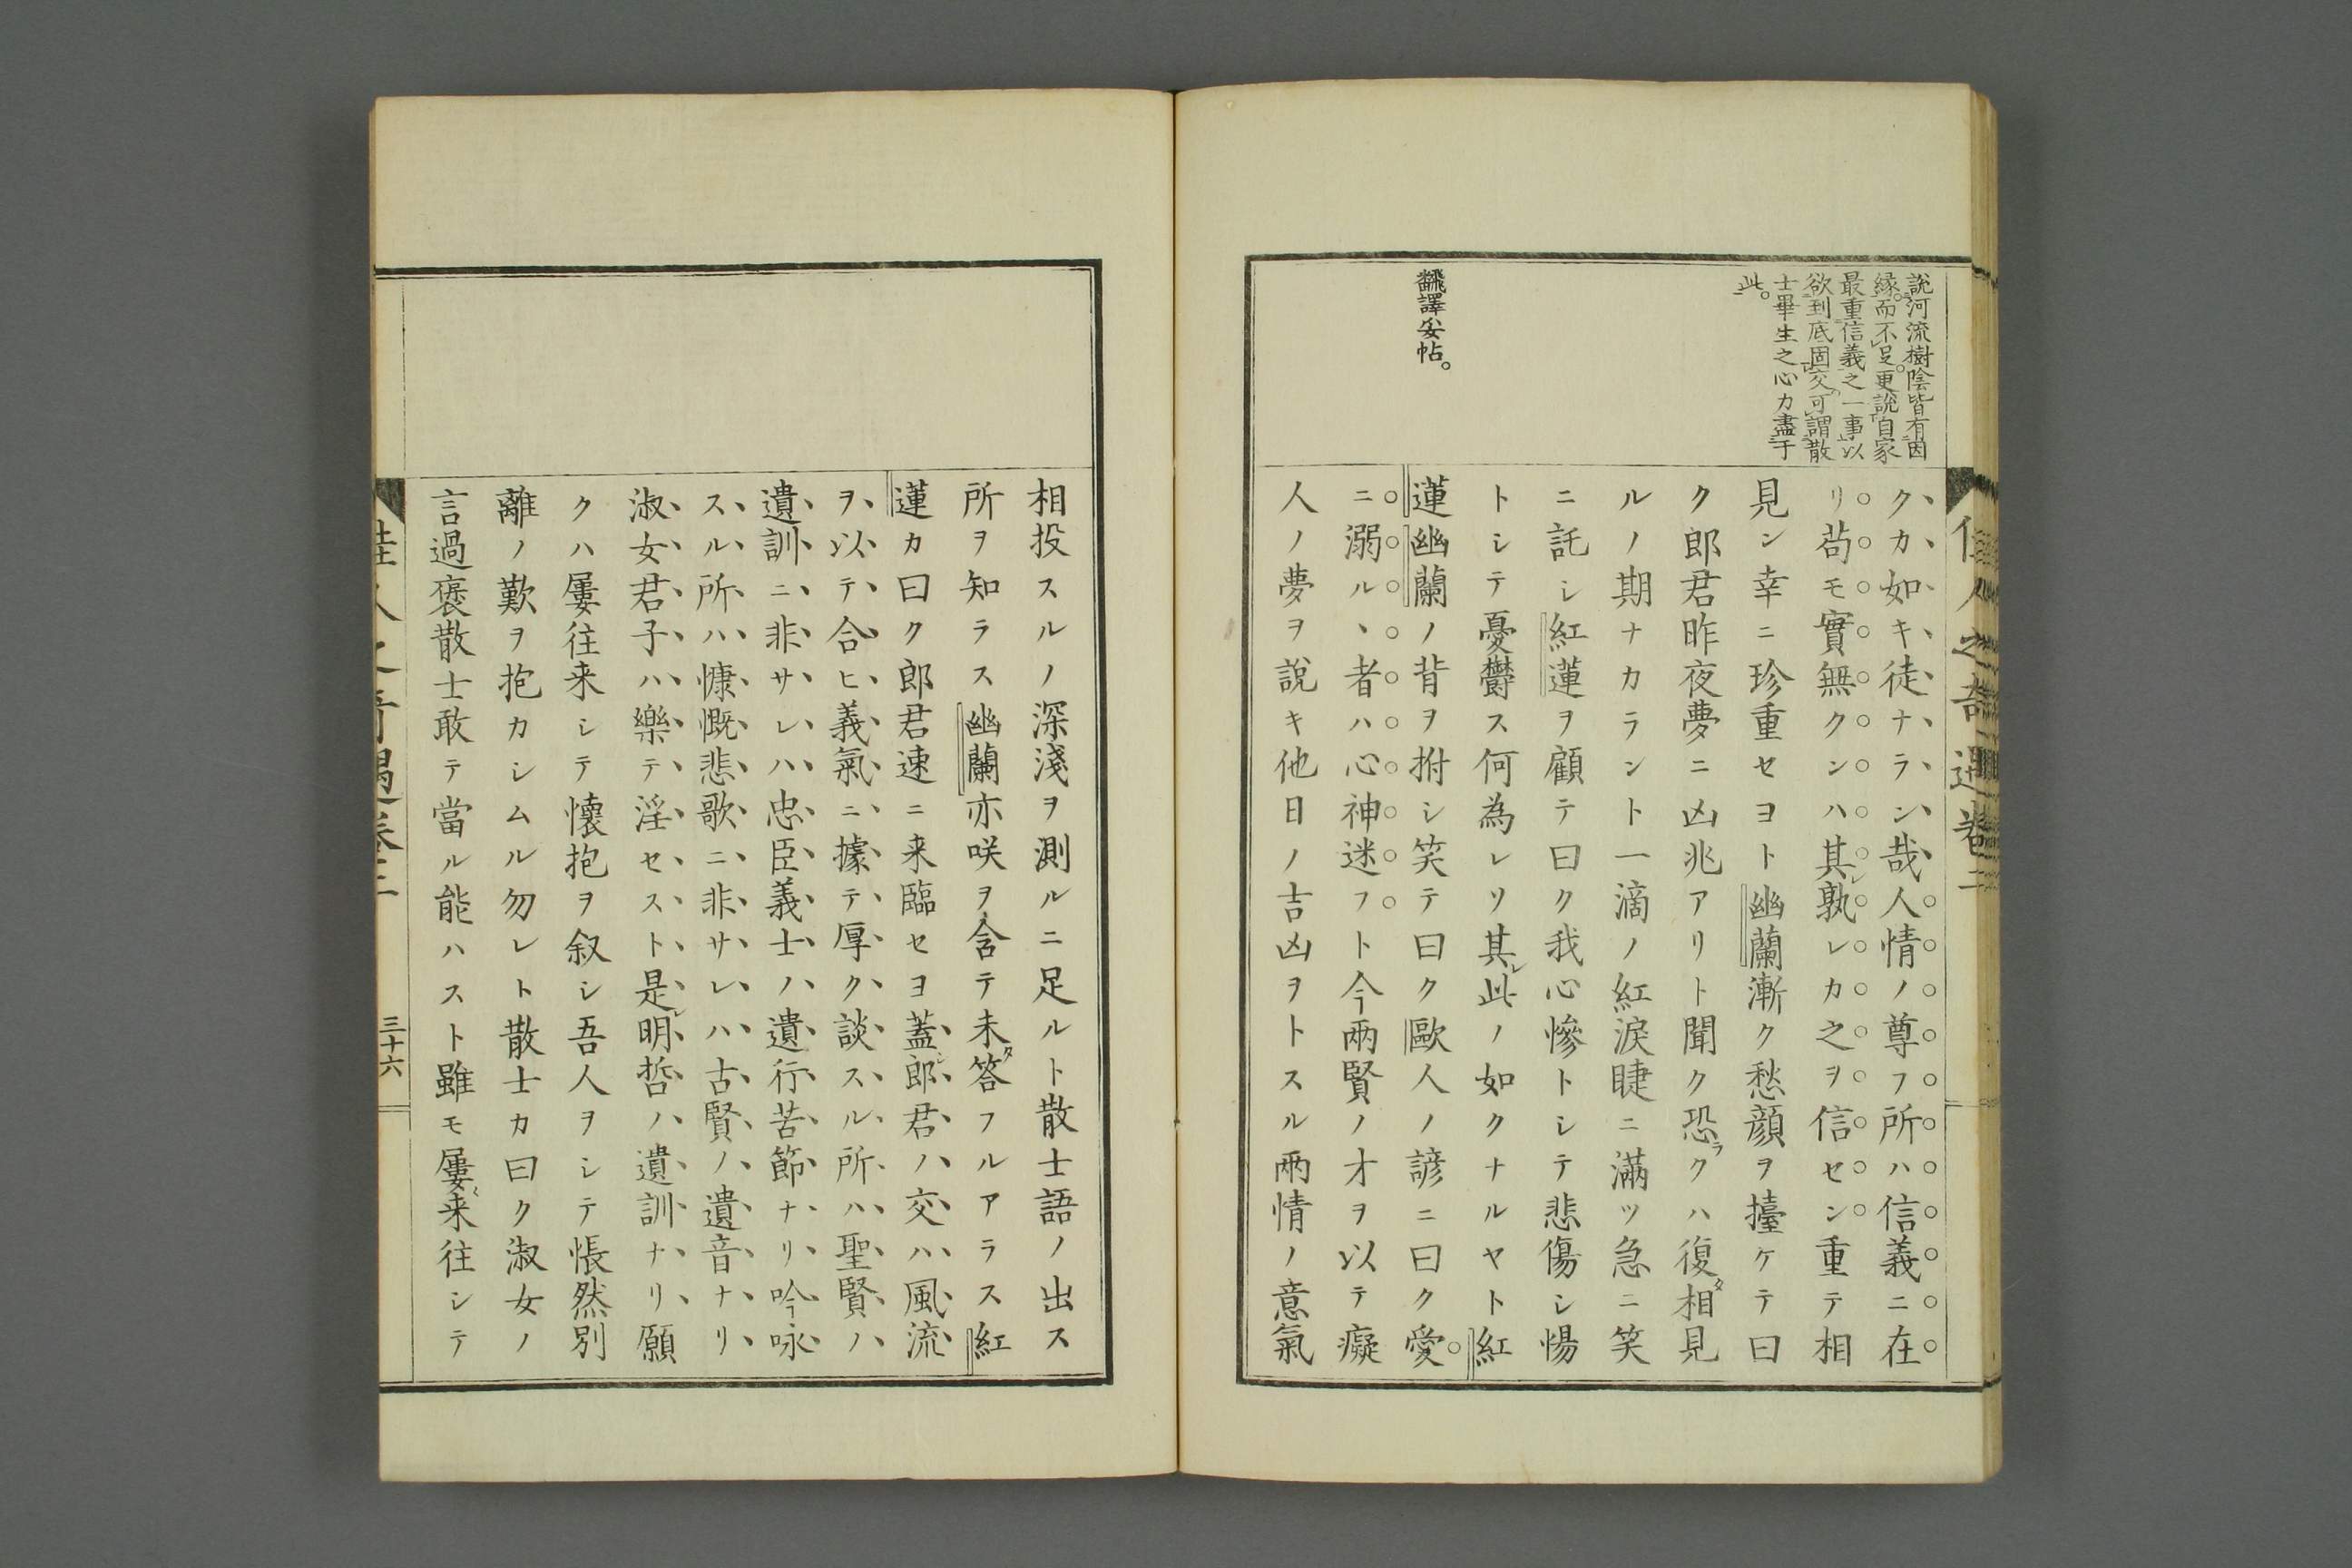 説河流樹陰皆有因
縁。而不足。更説自家
最重信義之一事以
欲到底固交。可謂散
士畢生之心力盡于
此。
飜譯妥帖。
クカ如キ徒ナラン哉人情ノ尊フ所ハ信義ニ在
リ苟モ實無クンハ其レ孰レカ之ヲ信セン重テ相
見ン幸ニ珍重セヨト幽蘭漸ク愁顔ヲ擡ケテ曰
ク郎君昨夜夢ニ凶兆アリト聞ク恐ラクハ復タ相見
ルノ期ナカラント一滴ノ紅涙睫ニ滿ツ急ニ笑
ニ託シ紅蓮ヲ顧テ曰ク我心惨トシテ悲傷シ惕
トシテ憂欝ス何為レソ其レ此ノ如クナルヤト紅
蓮幽蘭ノ背ヲ拊シ笑テ曰ク歐人ノ諺ニ曰ク愛
ニ溺ルヽ者ハ心神迷フト今兩賢ノ才ヲ以テ癡
人ノ夢ヲ説キ他日ノ吉凶ヲトスル兩情ノ意氣
佳人之奇遇卷二
相投スルノ深淺ヲ測ルニ足ルト散士語ノ出ス
所ヲ知ラス幽蘭亦咲ヲ含テ未タ答フルアラス紅
蓮カ曰ク郎君速ニ来臨セヨ蓋シ郎君ノ交ハ風流
ヲ以テ合ヒ義氣ニ據テ厚ク談スル所ハ聖賢ノ
遺訓ニ非サレハ忠臣義士ノ遺行苦節ナリ吟咏
スル所ハ慷慨悲歌ニ非サレハ古賢ノ遺音ナリ
淑女君子ハ樂テ淫セスト是レ明哲ノ遺訓ナリ願
クハ屢往来シテ懷抱ヲ叙シ吾人ヲシテ悵然別
離ノ歎ヲ抱カシムル勿レト散士カ曰ク淑女ノ
言過褒散士敢テ當ル能ハスト雖モ屢〻来往シテ
佳人之奇遇卷二
三十六